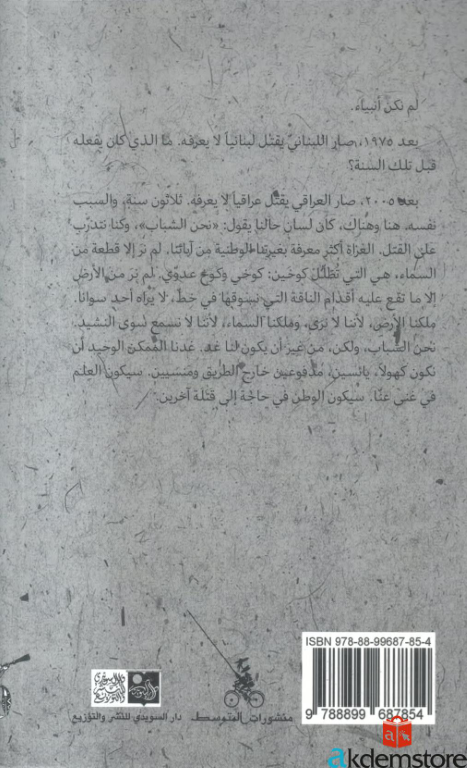 لم نكن أنبياء.
بعد ١٩٧٥، صار اللبناني يقتل لبنانياً لا يعرفه. ما الذي كان يفعله
قبل تلك السنة؟
بعد ٢٠٠٥، صار العراقي يقتل عراقياً لا يعرفه. ثلاثون سنة، والسبب
نفسه، هنا وهناك، كان لسان حالنا يقول: «نحن الشباب»، وكنا نتدرّب
على القتل. الغزاة أكثر معرفة بغيرتنا الوطنية من آبائنا. لم نر إلا قطعة من
السماء، هي التي تُظلّل كوخين: كوخي وكوخ عدوّي. لم نر من الأرض
إلا ما تقع عليه أقدام الناقة التي نسوقها في خطّ، لا يراه أحد سوانا.
ملكنا الأرض، لأننا لا نرى، وملكنا السماء، لأننا لا نسمع سوى النشيد.
نحن الشباب، ولكن، من غير أن يكون لنا غد. غدنا الممكن الوحيد أن
نكون كهولاً، يائسين، مدفوعين خارج الطريق ومنسيين. سيكون العلم
في غنى عنّا. سيكون الوطن في حاجة إلى قتلة آخرين.
ISBN 978-88-99687-85-4
9 788899 687854
منشورات المتوسط
دار السويدي للنشر والتوزيع
akdemstore